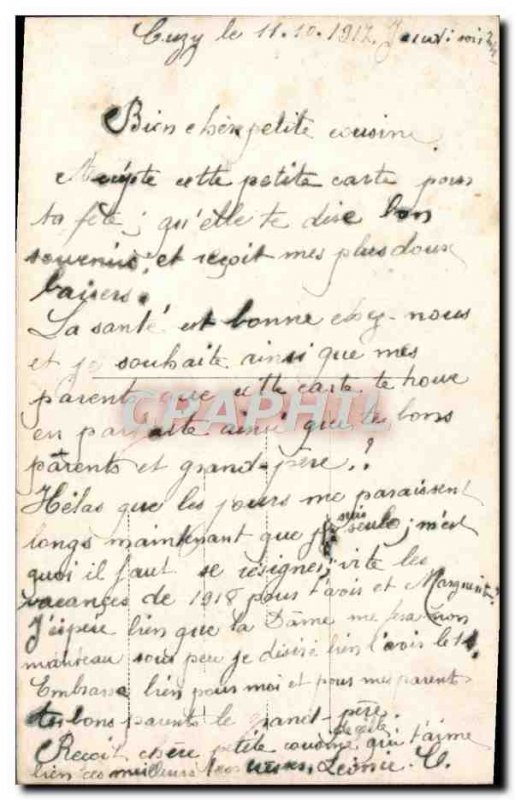 Cuzy le 11.10.1917. Jeudi soir
Bien chère petite cousine
Accepte cette petite carte pour
ta fête; qu'elle te dise bon
souvenir, et reçoit mes plus doux
baisers.
La santé est bonne chez-nous
et je souhaite ainsi que mes
parents que cette carte te trouve
en parfaite ainsi que tes bons
parents et grand-père.?
Hélas que les jours me paraissent
longs maintenant que je suis seule; m'est
quoi il faut se résigner, vite les
vacances de 1918 pour t'avoir et Marguerite?
J'éspère bien que la Dame me fera mon
manteau sous peu je désire bien l'avoir le
Embrasse bien pour moi et pour mes parents
tes bons parents le grand-père.
Reçoit chère petite cousine de celle qui t'aime
bien ces meilleurs Léonie. C.
CPAPHIL